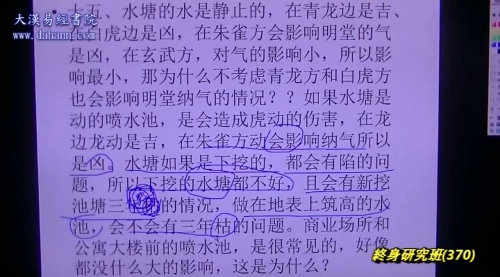 大漢易經書院
www.dahann.com
大五、水塘的水是静止的，在青龙边是吉、
白虎边是凶，在朱雀方会影响明堂的气
是凶，在玄武方，对气的影响小，所以影
响最小，那为什么不考虑青龙方和白虎方
也会影响明堂纳气的情况？？如果水塘是
动的喷水池，是会造成虎动的伤害，在龙
边龙动是吉，在朱雀方动会影响纳气所以
是凶。水塘如果是下挖的，都会有陷的问
题，所以下挖的水塘都不好，且会有新挖
池塘三年的情况，做在地表上筑高的水
池，会不会有三年枯的问题。商业场所和
公寓大楼前的喷水池，是很常见的，好像
都没什么大的影响，这是为什么？
終身研究班(370)